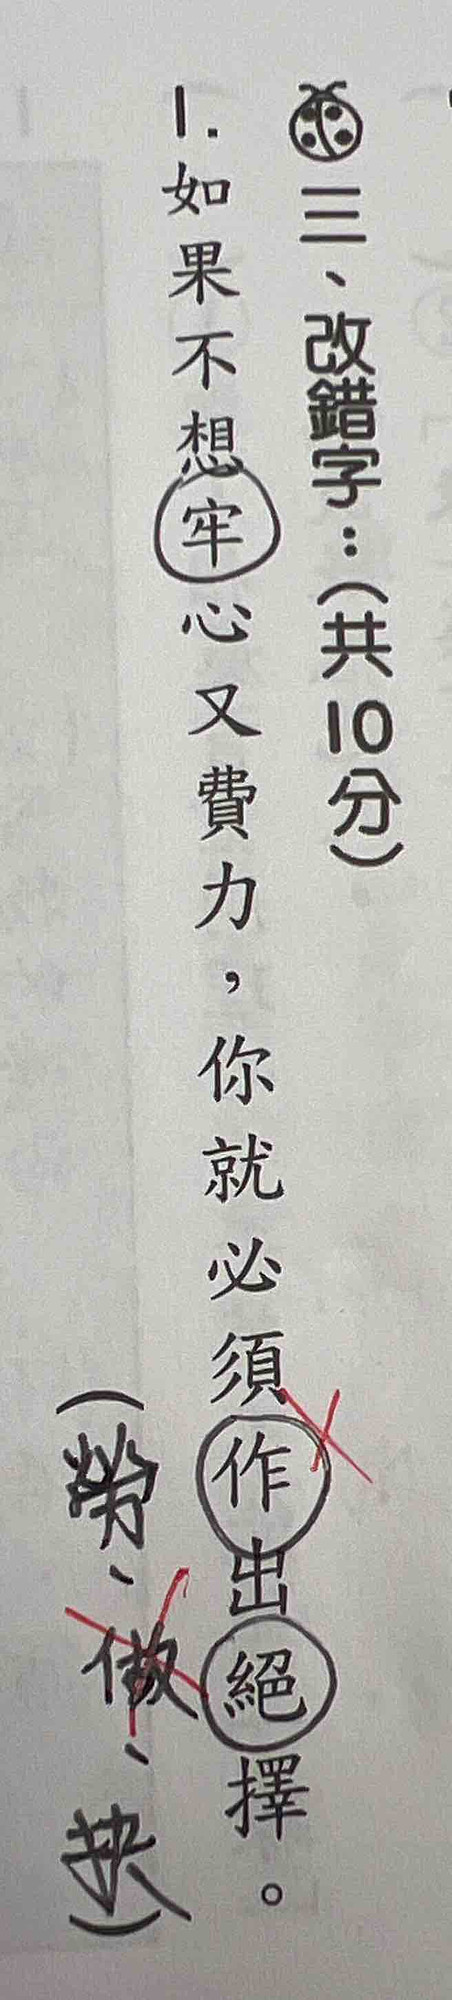 三、改錯字：(共10分)
1.如果不想牢心又費力，你就必須作出絕擇。
(勞、做、抉)